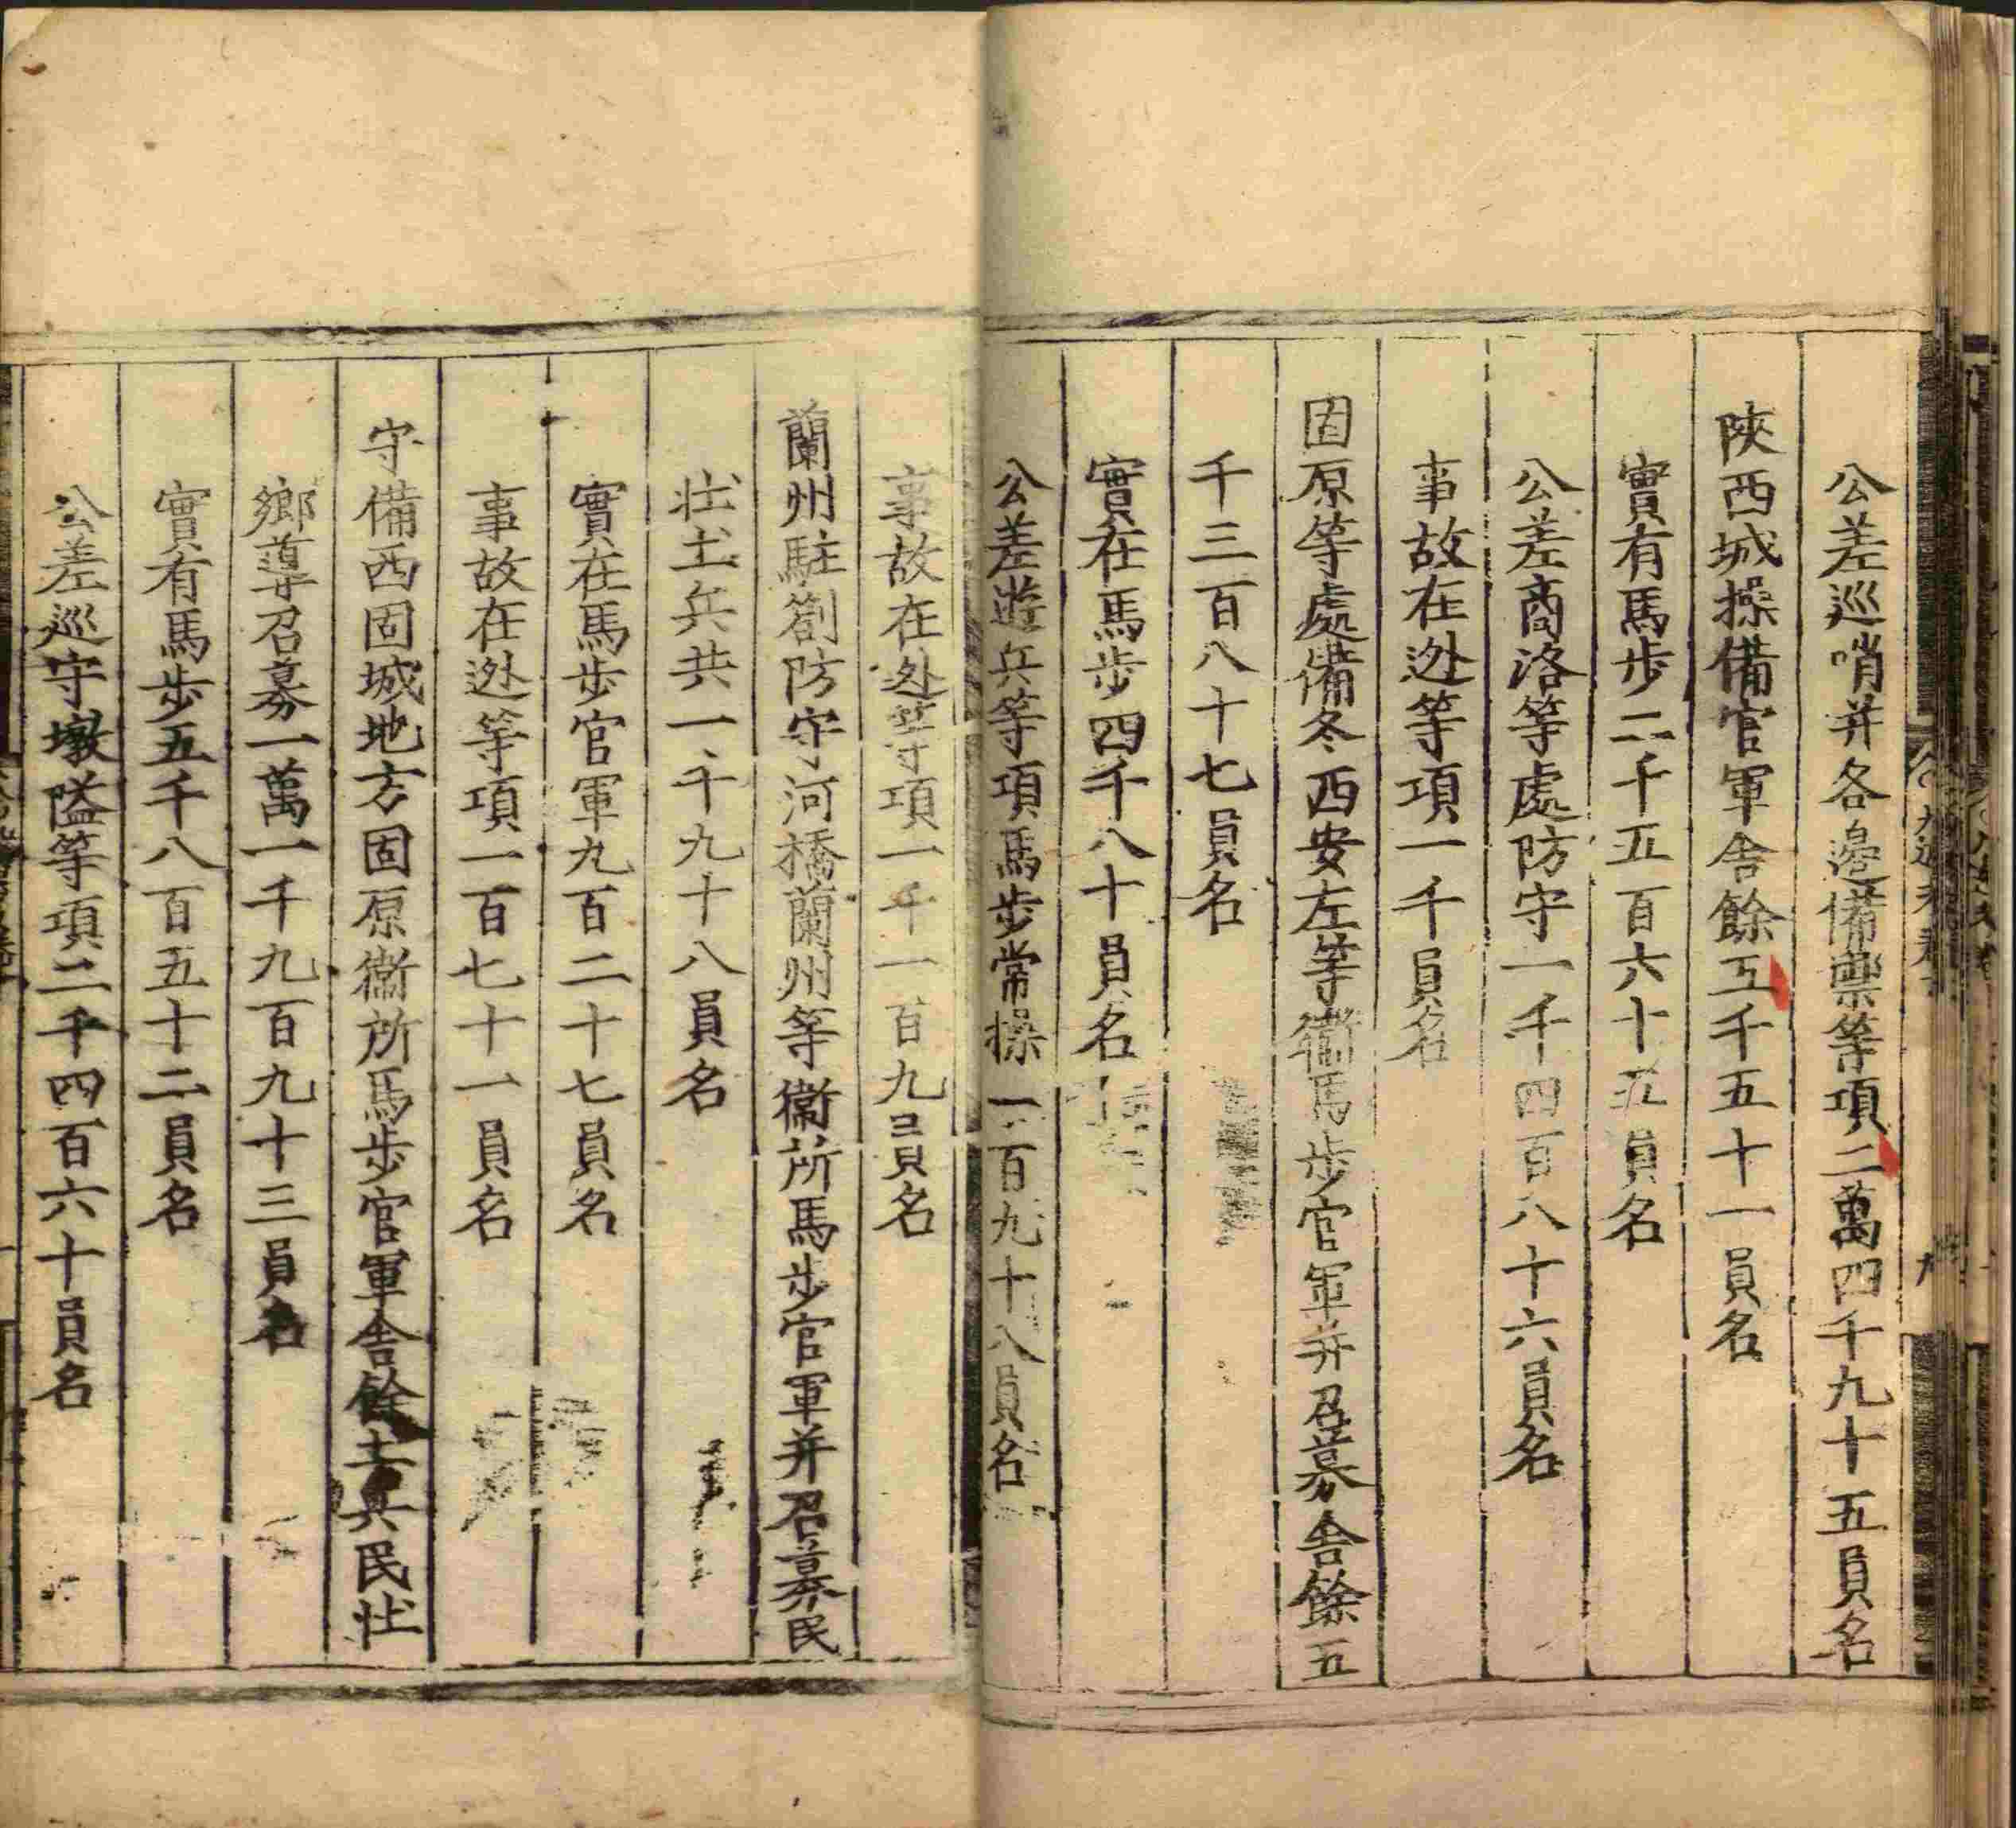 公差巡哨并各邉備禦等項二萬四千九十五員名
陝西城操備官軍舎餘五千五十一員名
實有馬步二千五百六十五員名
公差商洛等處防守一千四百八十六員名
事故在迯等項一千員名
固原等處備冬西安左等衞馬步官軍并召募舎餘五
千三百八十七員名
實在馬步四千八十員名
公差遊兵等項馬步常操一百九十八員名
事故在迯等項一千一百九員名
蘭州駐劄防守河橋蘭州等衞所馬步官軍并召募民
壯土兵共一千九十八員名
實在馬步官軍九百二十七員名
事故在迯等項一百七十一員名
守備西固城地方固原衞所馬步官軍舎餘土兵民壯
鄉導召募一萬一千九百九十三員名
實有馬步五千八百五十二員名
公差巡守墩隘等項二千四百六十員名